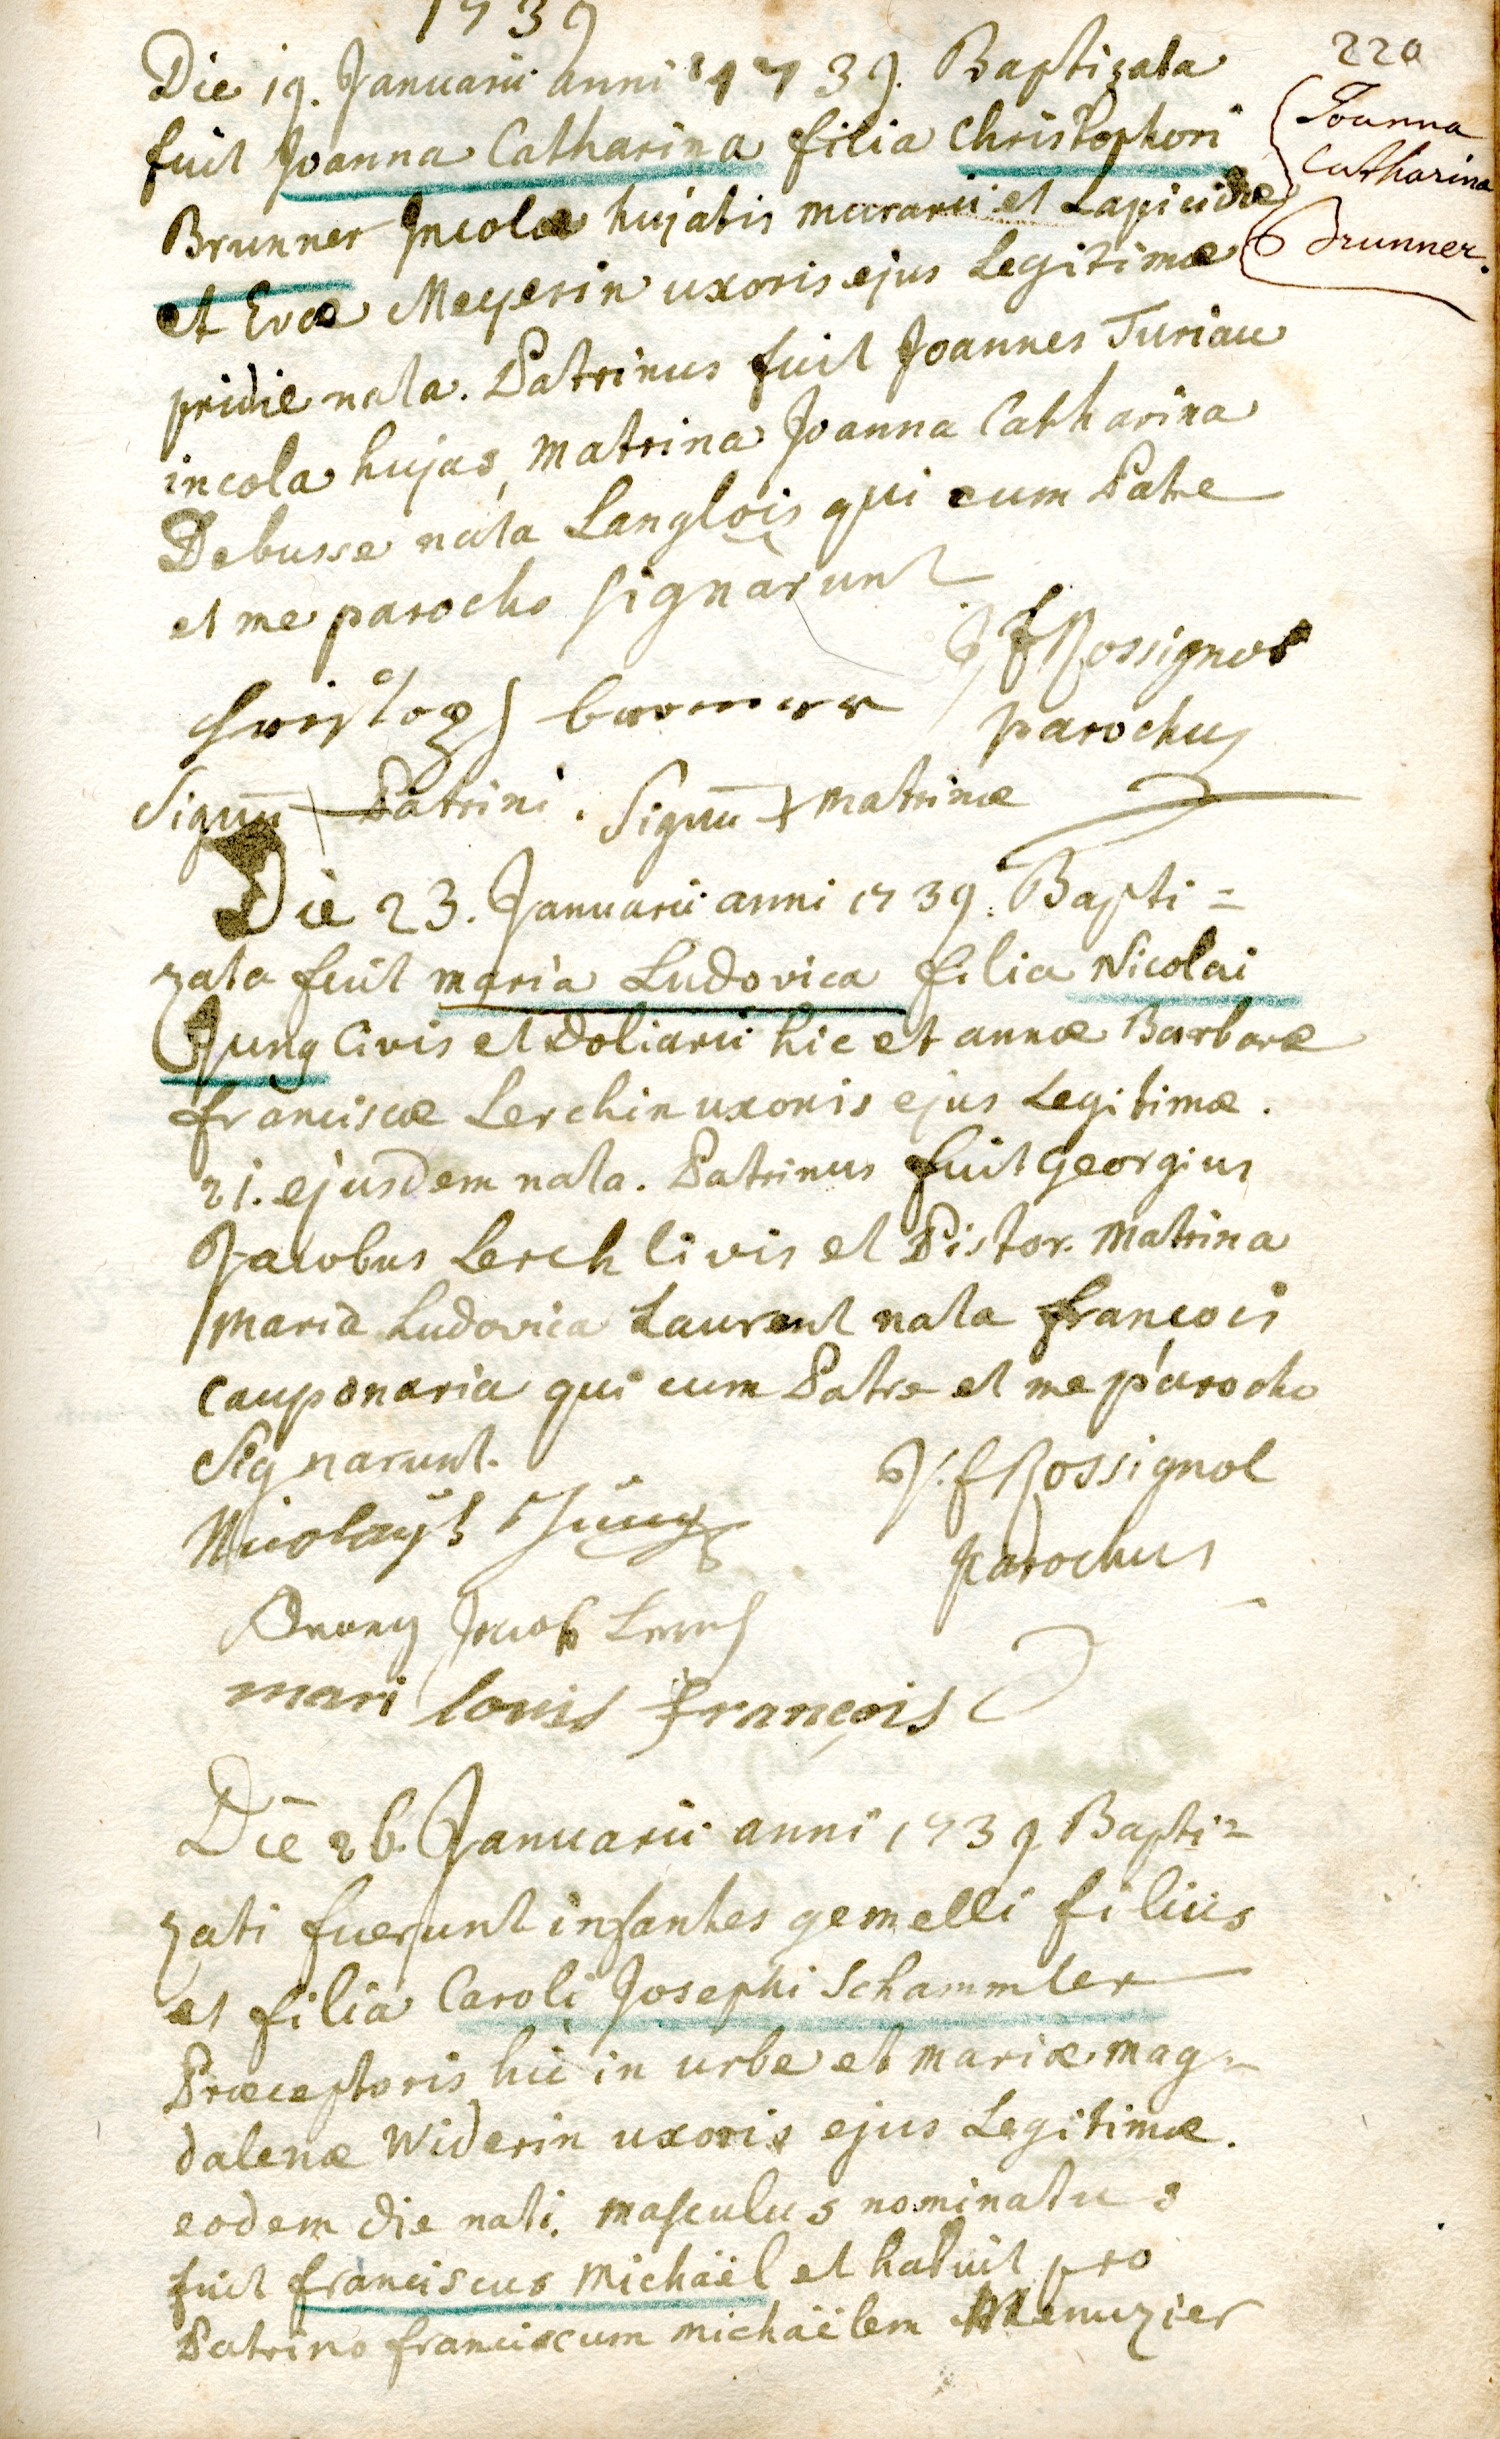 1739
220
Die 19. Januarii anni 1739. Baptizata
fuit Joanna Catharina filia Christophori
Joanna
Catharina
Brunner.
Brunner Incolæ hujatis murarii et Lapicidæ
et Evæ Meyerin uxoris ejus Legitimæ
pridie nata. Patrinus fuit Joannes Turiau
incola hujas, Matrina Joanna Catharina
Debusse nata Langlois qui cum Patre
et me parocho signarunt
J F Rossignol
parochus
Christoph
Signū + Patrini. Signū + matrinæ
Die 23. Januarii anni 1739. Bapti=
zata fuit maria Ludovica filia Nicolai
Jung Civis et Doliarii hic et annæ Barbaræ
franciscæ Lerchin uxoris ejus Legitimæ.
21. ejusdem nata. Patrinus fuit Georgius
Jacobus Lerch Civis et Pistor. Matrina
Maria Ludovica Laurent nata françois
cauponaria qui cum Patre et me parocho
Signarunt.
J. f Rossignol
parochus
Nicolaus Jung
Jacob Lerch
mari louis françois
Die 26. Januarii anni 1739 Bapti=
zati fuerunt infantes gemelli filius
et filia Caroli Josephi Schammler
Præceptoris hic in urbe et mariæ mag=
dalenæ Widerin uxoris ejus Legitimæ.
eodem die nati. masculus nominatus
fuit franciscus Michaël et habuit pro
Patrino franciscum michaëlem Menuzier